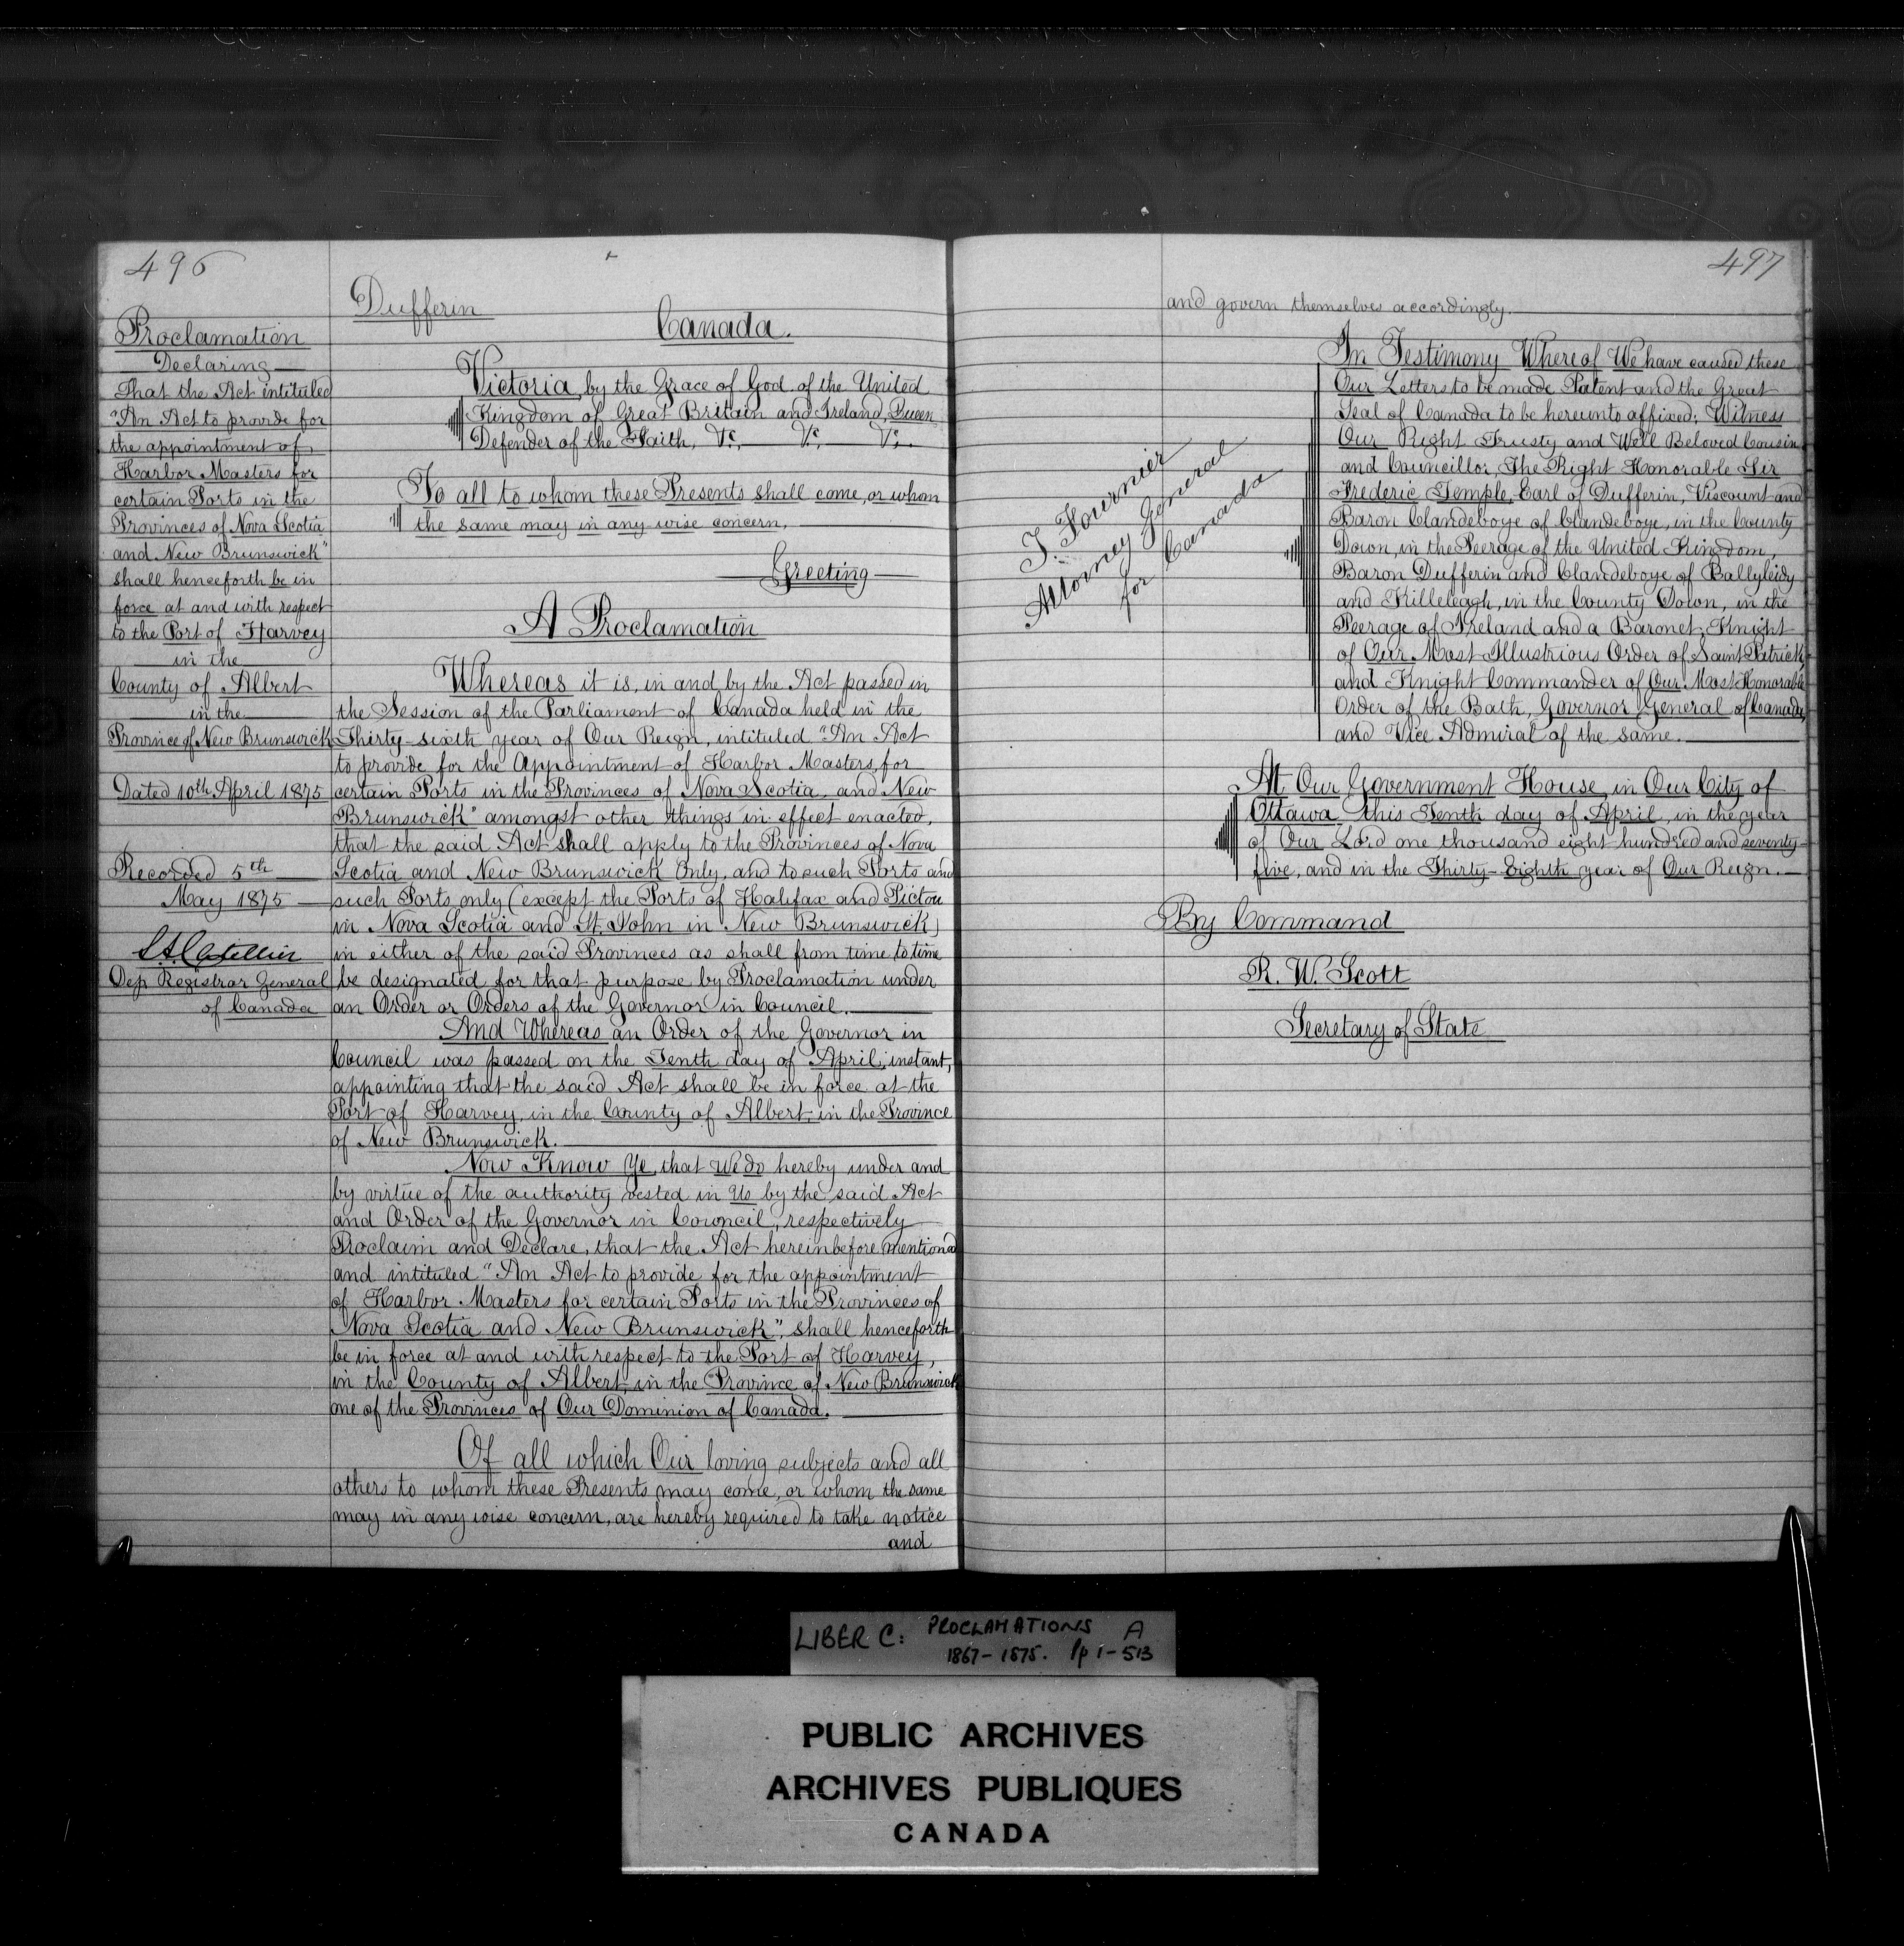 496
Proclamation
Declaring
That the Act intituled
"An Act to provide for
the appointment of
Harbor Masters for
certain Ports in the
Provinces of Nova Scotia
and New Brunswick"
shall henceforth be in
force at and with respect
to the Port of Harvey
in the
County of Albert
in the
Province of New Brunswick
Dated 10th April 1875
Recorded 5th
May 1875
Dep Registrar General
of Canada
Dufferin
Canada.
Victoria, by the Grace of God, of the United
Kingdom of Great Britain and Ireland, Queen
Defender of the Faith, &c, &c, &c.
To all to whom these Presents shall come, or whom
the same may in any wise concern,
Greeting
A Proclamation
Whereas it is, in and by the Act passed in
the Session of the Parliament of Canada held in the
Thirty-sixth year of Our Reign, intituled "An Act
to provide for the Appointment of Harbor Masters, for
certain Ports in the Provinces of Nova Scotia, and New
Brunswick" amongst other things in effect enacted,
that the said Act shall apply to the Provinces of Nova
Scotia and New Brunswick Only, and to such Ports and
such Ports only (except the Ports of Halifax and Pictou
in Nova Scotia and St. John in New Brunswick)
in either of the said Provinces as shall from time to time
be designated for that purpose by Proclamation under
an Order or Orders of the Governor in Council.
And Whereas an Order of the Governor in
Council was passed on the Tenth day of April, instant,
appointing that the said Act shall be in force at the
Port of Harvey, in the County of Albert, in the Province
of New Brunswick.
Now Know Ye, that We do hereby under and
by virtue of the authority vested in Us by the said Act
and Order of the Governor in Council, respectively
Proclaim and Declare, that the Act hereinbefore mentioned
and intituled "An Act to provide for the appointment
of Harbor Masters for certain Ports in the Provinces of
Nova Scotia and New Brunswick", shall henceforth
be in force at and with respect to the Port of Harvey,
in the County of Albert, in the Province of New Brunswick
one of the Provinces of Our Dominion of Canada.
Of all which Our loving subjects and all
others to whom these Presents may come, or whom the same
may in any wise concern, are hereby required to take notice
and
497
and govern themselves accordingly.
T. Fournier
Attorney General
for Canada
In Testimony Whereof We have caused these
Our Letters to be made Patent and the Great
Seal of Canada to be hereunto affixed; Witness
Our Right Trusty and Well Beloved Cousin
and Councillor, The Right Honorable Sir
Frederic Temple, Earl of Dufferin, Viscount and
Baron Clandeboye of Clandeboye, in the County
Down, in the Peerage of the United Kingdom,
Baron Dufferin and Clandeboye of Ballyleidy
and Killeleagh, in the County Down, in the
Peerage of Ireland and a Baronet, Knight
of Our Most Illustrious Order of Saint Patrick
and Knight Commander of Our Most Honorable
Order of the Bath, Governor General of Canada,
and Vice Admiral of the same.
At Our Government House, in Our City of
Ottawa this Tenth day of April, in the year
of Our Lord one thousand eight hundred and seventy-
five, and in the Thirty-Eighth year of Our Reign.
By Command
R. W. Scott
Secretary of State
LIBER C: PROCLAMATIONS A
1867-1875. pp 1-513
PUBLIC ARCHIVES
ARCHIVES PUBLIQUES
CANADA